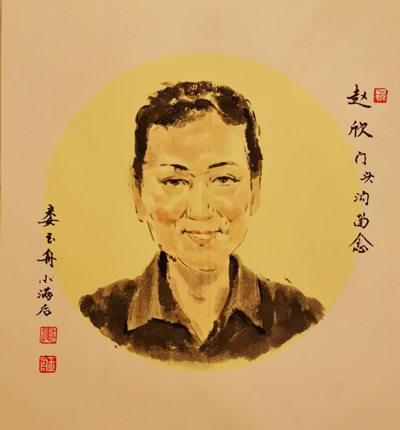 赵欣门头沟留念
娄玉舟小满后